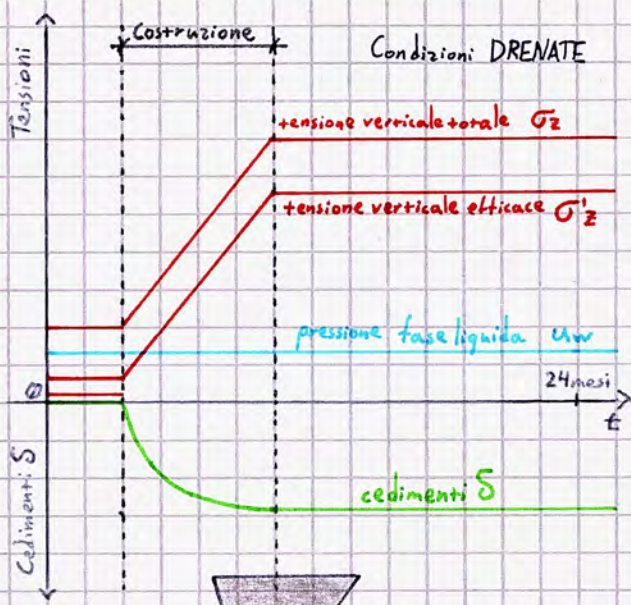 Costruzione
Condizioni DRENATE
Tensioni
tensione verticale totale σz
tensione verticale efficace σ'z
pressione fase liquida uw
24 mesi
0
t
Cedimenti δ
cedimenti δ